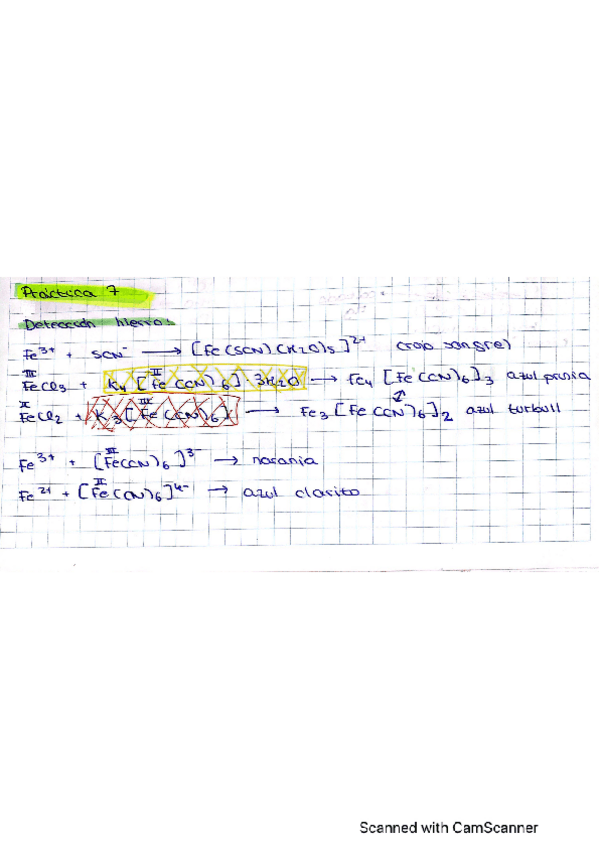 Práctica 7
Detección hierro:
Fe³⁺ + SCN⁻ → [Fe(SCN)(H2O)5]²⁺ (rojo sangre)
III II
FeCl3 + K4[Fe(CN)6]·3H2O → Fe4[Fe(CN)6]3 azul prusia
II III
FeCl2 + K3[Fe(CN)6] → Fe3[Fe(CN)6]2 azul turbull
Fe³⁺ + [Fe(CN)6]³⁻ → naranja
II
Fe²⁺ + [Fe(CN)6]⁴⁻ → azul clarito
Scanned with CamScanner